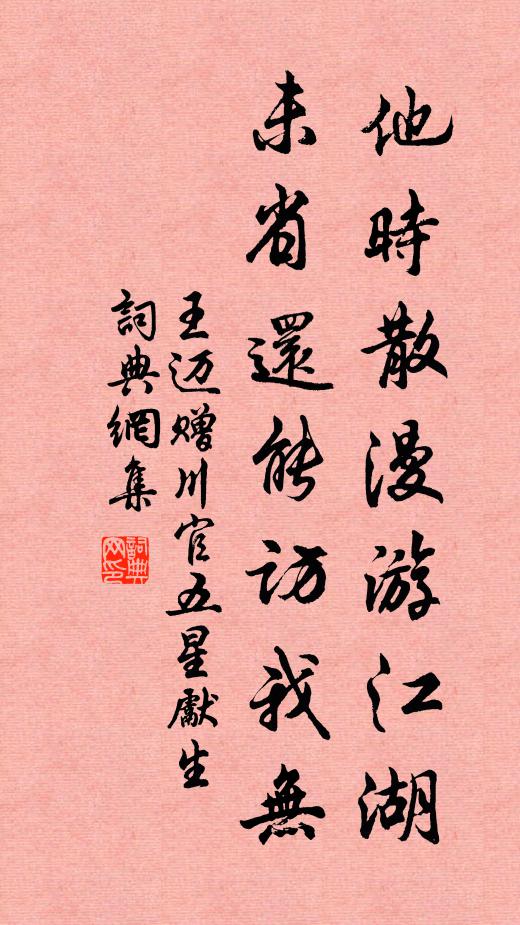 他時散漫游江湖
未省還能訪我無
王迈赠川官五星獻生
詞典網集
詞典網印